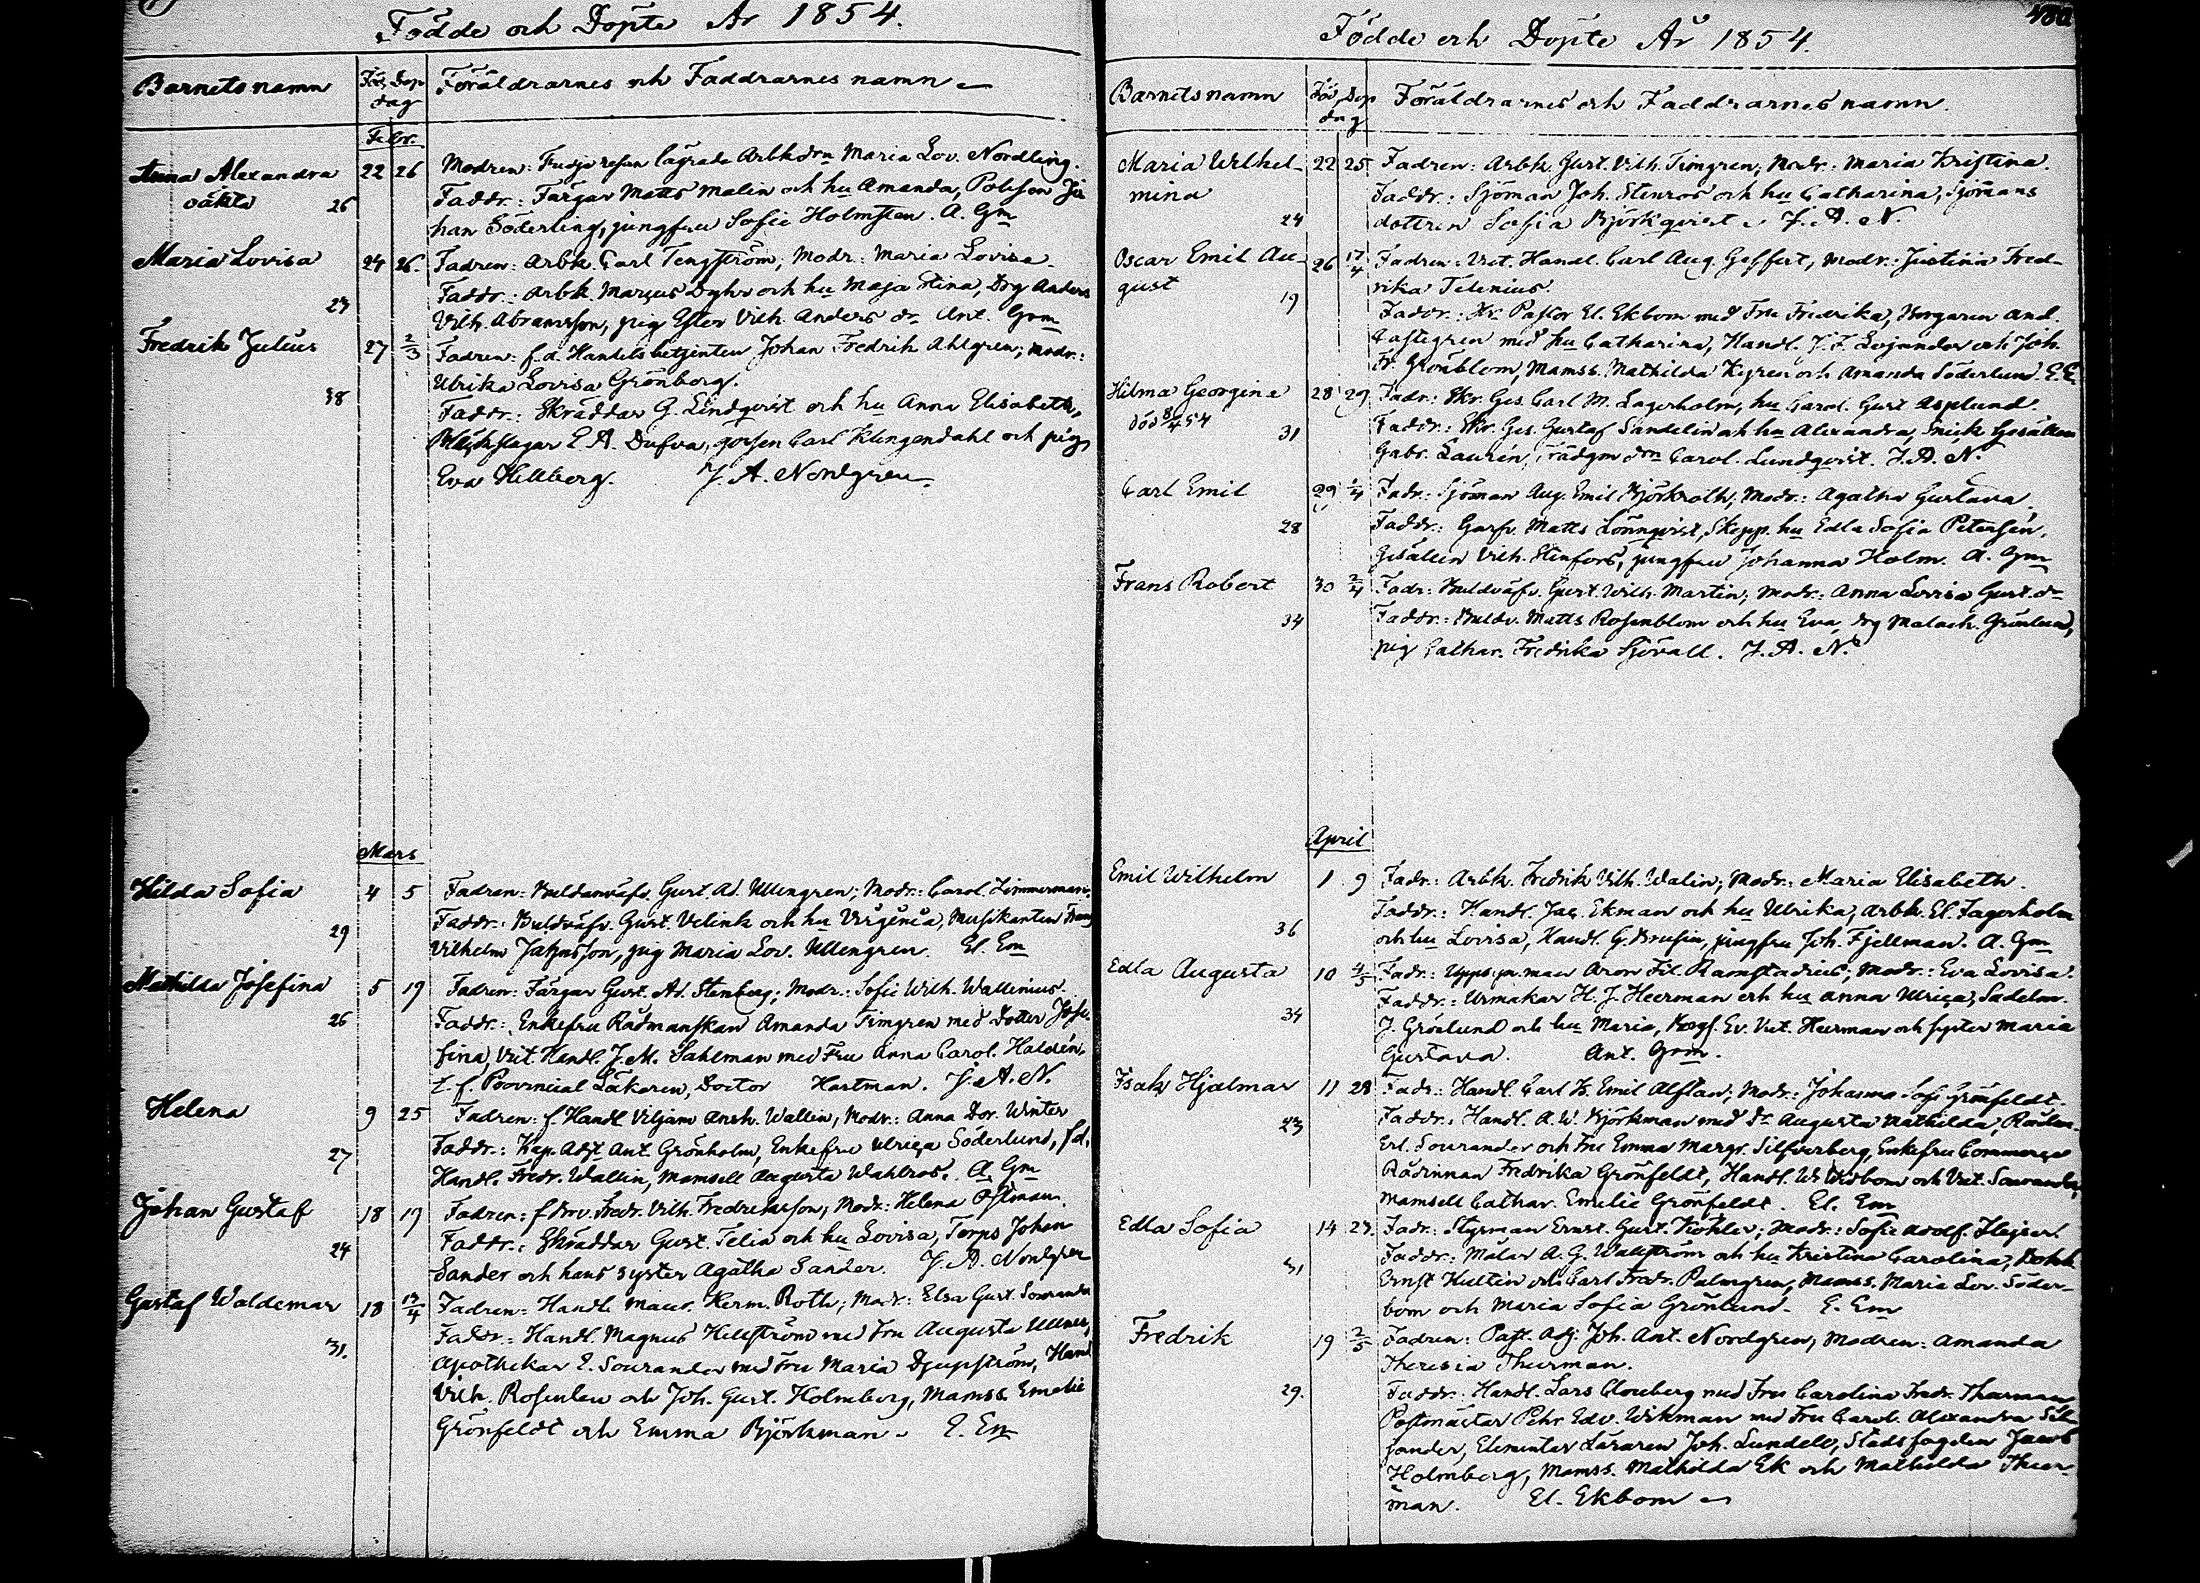 Födde och Döpte År 1854.
Barnets namn
Föd. Dop
dag
Föräldrarnes och Faddrarnes namn
Febr.
Anna Alexandra 22 26 Modren: Tredje resan lägrade Arbkdrn Maria Lov. Nordling.
oäkta 26 Faddr: Färgar Matts Malin och hu Amanda, Polisson Jo
han Söderling, jungfru Sofie Holmsten. A. Gm
Maria Lovisa 24 26. Fadren: Arbk. Carl Tengström, Modr: Maria Lovisa
23 Faddr.: Arbk. Marcus Dyhr och hu Maja Stina, Drg Anders
Vilh. Abramsson, pig Ester Vilh. Anders dr Ant. Grm
Fredrik Julius 27 2/3 Fadren: f.d. Handelsbetjenten Johan Fredrik Ahlgren; Modr.:
Ulrika Lovisa Grönberg.
38 Faddr.: Skräddar G. Lindqvist och hu Anna Elisabeth,
Bleckslagar E. A. Dufva, gossen Carl Klingendahl och pig
Eva Hellberg. J. A. Nordgren
Mars
Hilda Sofia 4 5 Fadren: Buldanväfv. Gust. Ad. Ullengren; Modr: Carol. Zimmerman.
29 Faddr: Buldväfv. Gust. Velink och hu Virginia, Musikanten Frans
Vilhelm Jahnsson, pig Maria Lov. Ullengren. El. Em
Mathilda Josefina 5 19 Fadren: Färgar Gust. Ad. Stenberg; Modr.: Sofie Wilh. Wallenius.
26 Faddr.: Enkefru Rådmanskan Amanda Timgren med Dotter Jose-
fina, Vict. Handl. J. M. Sahlman med Fru Anna Carol. Haldén,
t. f. Provincial Läkaren, Doctor Hartman. J. A. N.
Helena 9 25 Fadren: f. Handl Viljam Andr. Wallin, Modr: Anna Dor. Winter
27 Faddr: Kap. Adjt Ant. Grönholm, Enkefru Ulrica Söderlund, f d.
Handl. Fredr. Wallin, Mamsell Augusta Wahlros. A Gm
Johan Gustaf 18 19 Fadren: f Brv. Fredr. Vilh. Fredriksson, Modr: Helena Östman.
24 Faddr.: Skräddar Gust. Telin och hu Lovisa, Torps Johan
Sander och hans syster Agatha Sander. J. A. Nordgren
Gustaf Waldemar 18 17/4 Fadren: Handl. Maur. Herm. Roth; Modr: Elsa Gust. Sourander
31. Faddr: Handl. Magnus Hellström med Fru Augusta Ullner,
Apothekar E. Sourander med Fru Maria Djupström, Handl
Vilh. Rosenlew och Joh. Gust. Holmberg, Mamss. Emelie
Grönfeldt och Emma Björkman. E. Em
Födde och Döpte År 1854.
Barnets namn
Föd. Dop
dag
Föräldrarnes och Faddrarnes namn.
Maria Wilhel- 22 25 Fadren: Arbk. Gust. Vilh. Timgren; Modr.: Maria Kristina.
mina Faddr.: Sjöman Joh. Stenros och hu Catharina, Sjömans
24 dottren Sofia Björkqvist. J. A. N.
Oscar Emil Au- 26 17/4 Fadren: Vict. Handl. Carl Aug. Geffert, Modr.: Justina Fred-
gust 19 rika Telenius.
Faddr.: Hr. Pastor El. Ekbom med Fru Fredrika, Borgaren And.
Castegren med hu Catharina, Handl. J. F. Lojander och Joh.
Fr. Grönblom, Mamss. Mathilda Kyren och Amanda Söderlund. E. E.
Hilma Georgina 28 29 Fadr: Skr. Ges. Carl M. Lagerholm, hu Carol. Gust Asplund.
död 8/4 54 31 Faddr: Skr. Ges. Gustaf Sandelin och hu Alexandra, Snick Gesällen
Gabr. Laurén, Trädgm drn Carol. Lundqvist. J. A. N.
Carl Emil 29 2/4 Fadr: Sjöman Aug. Emil Björkroth, Modr.: Agatha Gustava.
28 Faddr.: Garfv. Matts Lönnqvist, Skepp. hu Edla Sofia Petersén,
Gesällen Vilh. Stenfors, jungfru Johanna Holm. A. Gm
Frans Robert 30 2/4 Fadr: Buldväfv. Gust. Wilh. Martin; Modr: Anna Lovisa Gust. dr
34 Faddr.: Buldv. Matts Rosenblom och hu Eva, drg Malach. Grönlund,
pig Cathar. Fredrika Sjövall. J. A. N.
April
Emil Wilhelm 1 9 Fadr.: Arbk. Fredrik Vilh. Walin; Modr.: Maria Elisabeth.
36 Faddr.: Handl. Jac. Ekman och hu Ulrika, Arbk. El. Fagerholm
och hu Lovisa, Handl. G. Brusin, jungfru Joh. Fjellman. A. Gm
Edla Augusta 10 4/5 Fadr.: Upps. sy. man Aron Fil. Ramstadius; Modr.: Eva Lovisa.
34 Faddr.: Urmakar H. J. Heerman och hu Anna Ulrica, Sadelm.
J. Grönlund och hu Maria, Borgs. Ev. Vict. Heerman och syster Maria
Gustava. Ant. Grm.
Isak Hjalmar 11 28 Fadr.: Handl. Carl B. Emil Alftan; Modr: Johanna Sofi Grönfeldt.
23 Faddr.: Handl. A. W. Björkman med Dr Augusta Mathilda, Rådm.
Erl. Sourander och Fru Emma Margr. Silfverberg, Enkefru Commerce
Rådinnan Fredrika Grönfeldt, Handl. W. Widbom och Vict. Sourander,
Mamsell Cathar. Emilie Grönfeldt. El. Em
Edla Sofia 14 23. Fadr: Styrman Ernst. Gust. Köhler; Modr: Sofie Adolf. Hejser.
31 Faddr: Målar A. G. Wallström och hu Kristina Carolina, Bokh
Ernst Hultin och Carl Fredr. Palmgren, Mamss. Maria Lov. Söder-
bom och Maria Sofia Grönlund. E. Em
Fredrik 19 2/5 Fadren: Past. Adj. Joh. Ant. Nordgren; Modren: Amanda
Theresia Thurman.
29. Faddr: Handl. Lars Clouberg med Fru Carolina Fredr. Thurman
Postmästar Pehr Edv. Wikman med Fru Carol. Alexandra Sil-
fander, Elementar Läraren Joh. Lundell, Stadsfogden Jacob
Holmberg, Mamss. Mathilda Ek och Mathilda Thur-
man. El. Ekbom